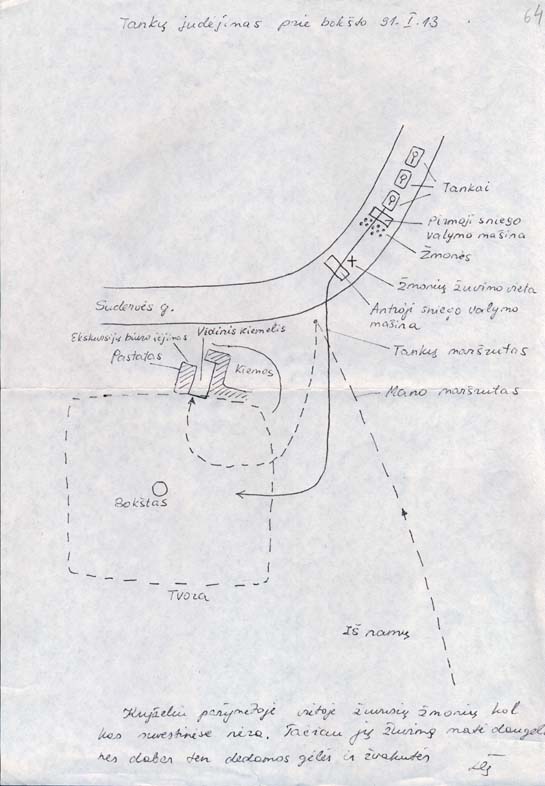 64
Tankų judėjimas prie bokšto 91.I.13.
Tankai
Pirmoji sniego
valymo mašina
Žmonės
Žmonių žuvimo vieta
Antroji sniego valymo
mašina
Sudervės g.
Vidinis kiemelis
Ekskursijų biuro įėjimas
Pastatas
Kiemas
Tankų maršrutas
Mano maršrutas
Bokštas
Tvora
Iš namų
Kryželiu pažymėtoje vietoje žuvusių žmonių kol
kas suvestinėse nėra. Tačiau jų žuvimą matė daugelis
nes dabar ten dedamos gėlės ir žvakutės